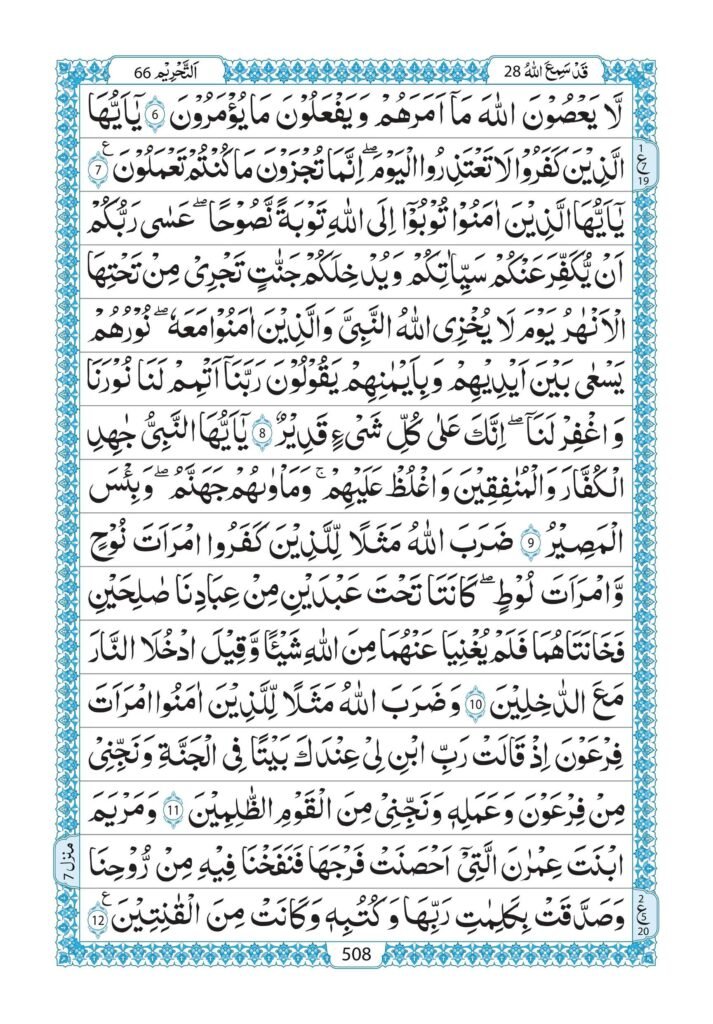 اَلتَّحْرِيْم 66
قَدْ سَمِعَ اللّٰهُ 28
لَّا يَعْصُوْنَ اللّٰهَ مَاۤ اَمَرَهُمْ وَيَفْعَلُوْنَ مَا يُؤْمَرُوْنَ 6 يٰۤاَيُّهَا
الَّذِيْنَ كَفَرُوْا لَا تَعْتَذِرُوا الْيَوْمَ ؕ اِنَّمَا تُجْزَوْنَ مَا كُنْتُمْ تَعْمَلُوْنَ ࣖ 7
1 ع 7 19
يٰۤاَيُّهَا الَّذِيْنَ اٰمَنُوْا تُوْبُوْۤا اِلَى اللّٰهِ تَوْبَةً نَّصُوْحًا ؕ عَسٰى رَبُّكُمْ
اَنْ يُّكَفِّرَ عَنْكُمْ سَيِّاٰتِكُمْ وَيُدْخِلَكُمْ جَنّٰتٍ تَجْرِيْ مِنْ تَحْتِهَا
الْاَنْهٰرُ يَوْمَ لَا يُخْزِى اللّٰهُ النَّبِيَّ وَالَّذِيْنَ اٰمَنُوْا مَعَهٗ ۖ نُوْرُهُمْ
يَسْعٰى بَيْنَ اَيْدِيْهِمْ وَبِاَيْمٰنِهِمْ يَقُوْلُوْنَ رَبَّنَاۤ اَتْمِمْ لَنَا نُوْرَنَا
وَاغْفِرْ لَنَا ۖ اِنَّكَ عَلٰى كُلِّ شَيْءٍ قَدِيْرٌ 8 يٰۤاَيُّهَا النَّبِيُّ جٰهِدِ
الْكُفَّارَ وَالْمُنٰفِقِيْنَ وَاغْلُظْ عَلَيْهِمْ ۚ وَمَاْوٰىهُمْ جَهَنَّمُ ۖ وَبِئْسَ
الْمَصِيْرُ 9 ضَرَبَ اللّٰهُ مَثَلًا لِّلَّذِيْنَ كَفَرُوا امْرَاَتَ نُوْحٍ
وَّامْرَاَتَ لُوْطٍ ۖ كَانَتَا تَحْتَ عَبْدَيْنِ مِنْ عِبَادِنَا صٰلِحَيْنِ
فَخَانَتَاهُمَا فَلَمْ يُغْنِيَا عَنْهُمَا مِنَ اللّٰهِ شَيْـًٔا وَّقِيْلَ ادْخُلَا النَّارَ
مَعَ الدّٰخِلِيْنَ 10 وَضَرَبَ اللّٰهُ مَثَلًا لِّلَّذِيْنَ اٰمَنُوا امْرَاَتَ
فِرْعَوْنَ اِذْ قَالَتْ رَبِّ ابْنِ لِيْ عِنْدَكَ بَيْتًا فِى الْجَنَّةِ وَنَجِّنِيْ
مِنْ فِرْعَوْنَ وَعَمَلِهٖ وَنَجِّنِيْ مِنَ الْقَوْمِ الظّٰلِمِيْنَ 11 وَمَرْيَمَ
ابْنَتَ عِمْرٰنَ الَّتِيْۤ اَحْصَنَتْ فَرْجَهَا فَنَفَخْنَا فِيْهِ مِنْ رُّوْحِنَا
منزل 7
وَصَدَّقَتْ بِكَلِمٰتِ رَبِّهَا وَكُتُبِهٖ وَكَانَتْ مِنَ الْقٰنِتِيْنَ ࣖ 12
2 ع 5 20
508